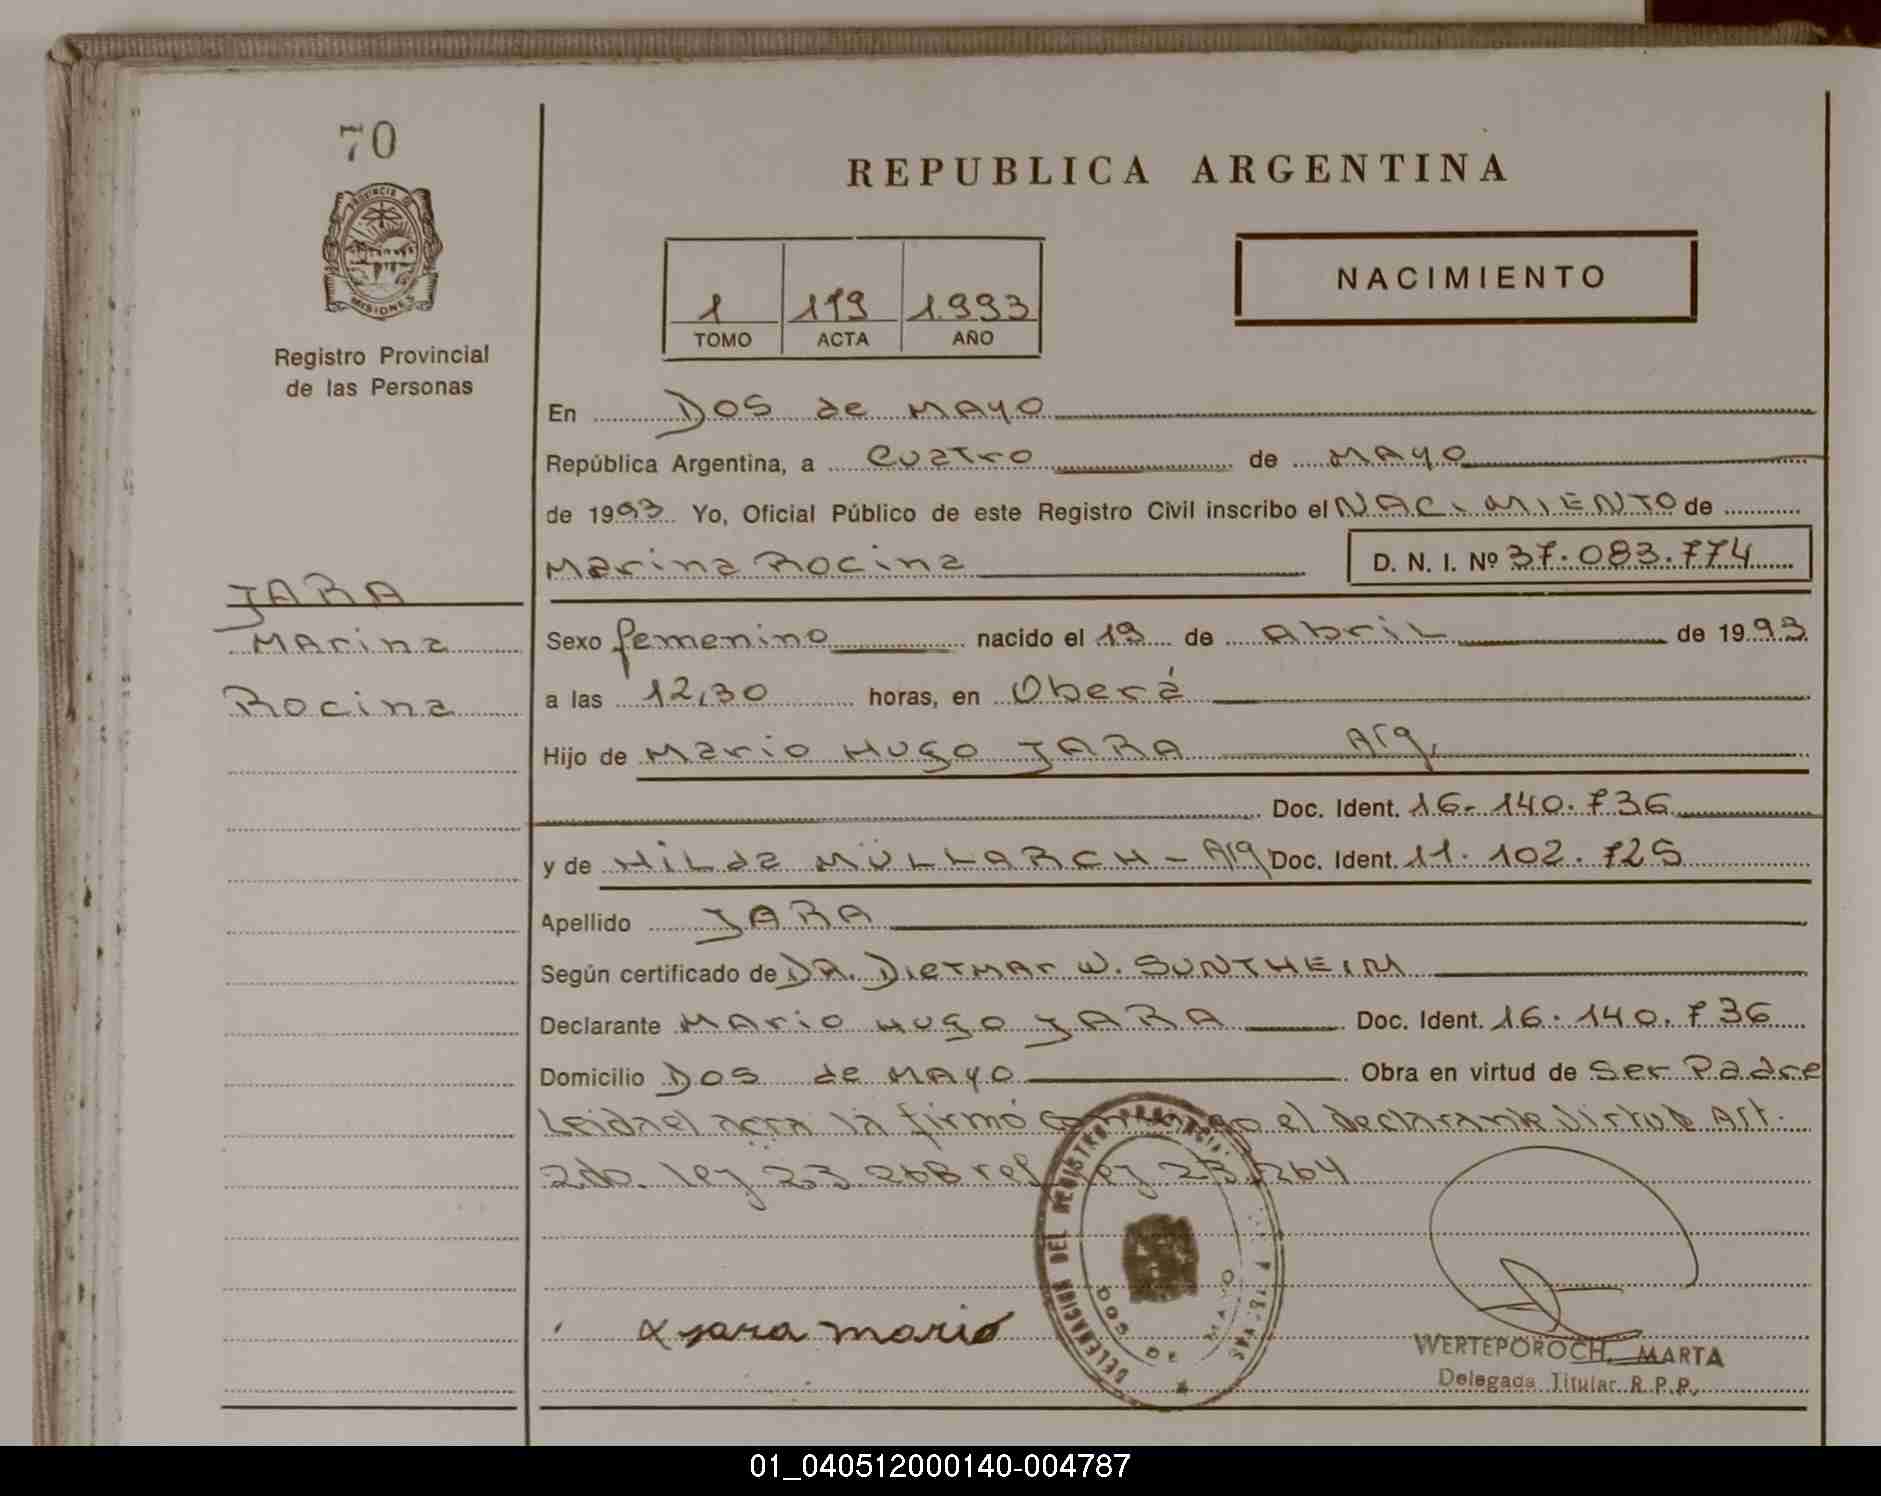 70
PROVINCIA DE
MISIONES
Registro Provincial
de las Personas
JARA
Marina
Rocina
REPUBLICA ARGENTINA
1 119 1.993
TOMO ACTA AÑO
NACIMIENTO
En Dos de Mayo
República Argentina, a Cuatro de Mayo
de 1993 Yo, Oficial Público de este Registro Civil inscribo el NACIMIENTO de
Marina Rocina D. N. I. Nº 37.083.774
Sexo femenino nacido el 19 de Abril de 1993
a las 12,30 horas, en Oberá
Hijo de Mario Hugo JARA Arg.
Doc. Ident. 16.140.736
y de Hilda MÜLLARCH - Arg Doc. Ident. 11.102.725
Apellido JARA
Según certificado de DR. Dietmar W. SUNTHEIM
Declarante Mario Hugo JARA Doc. Ident. 16.140.736
Domicilio Dos de Mayo Obra en virtud de Ser Padre
Leida el acta la firmó conmigo el declarante Virtud Art.
2do. ley 23 268 ref ley 23.264
DELEGACION DEL REGISTRO PROVINCIAL
DOS DE MAYO
x jara mario
WERTEPOROCH, MARTA
Delegada Titular R.P.P.
01_040512000140-004787